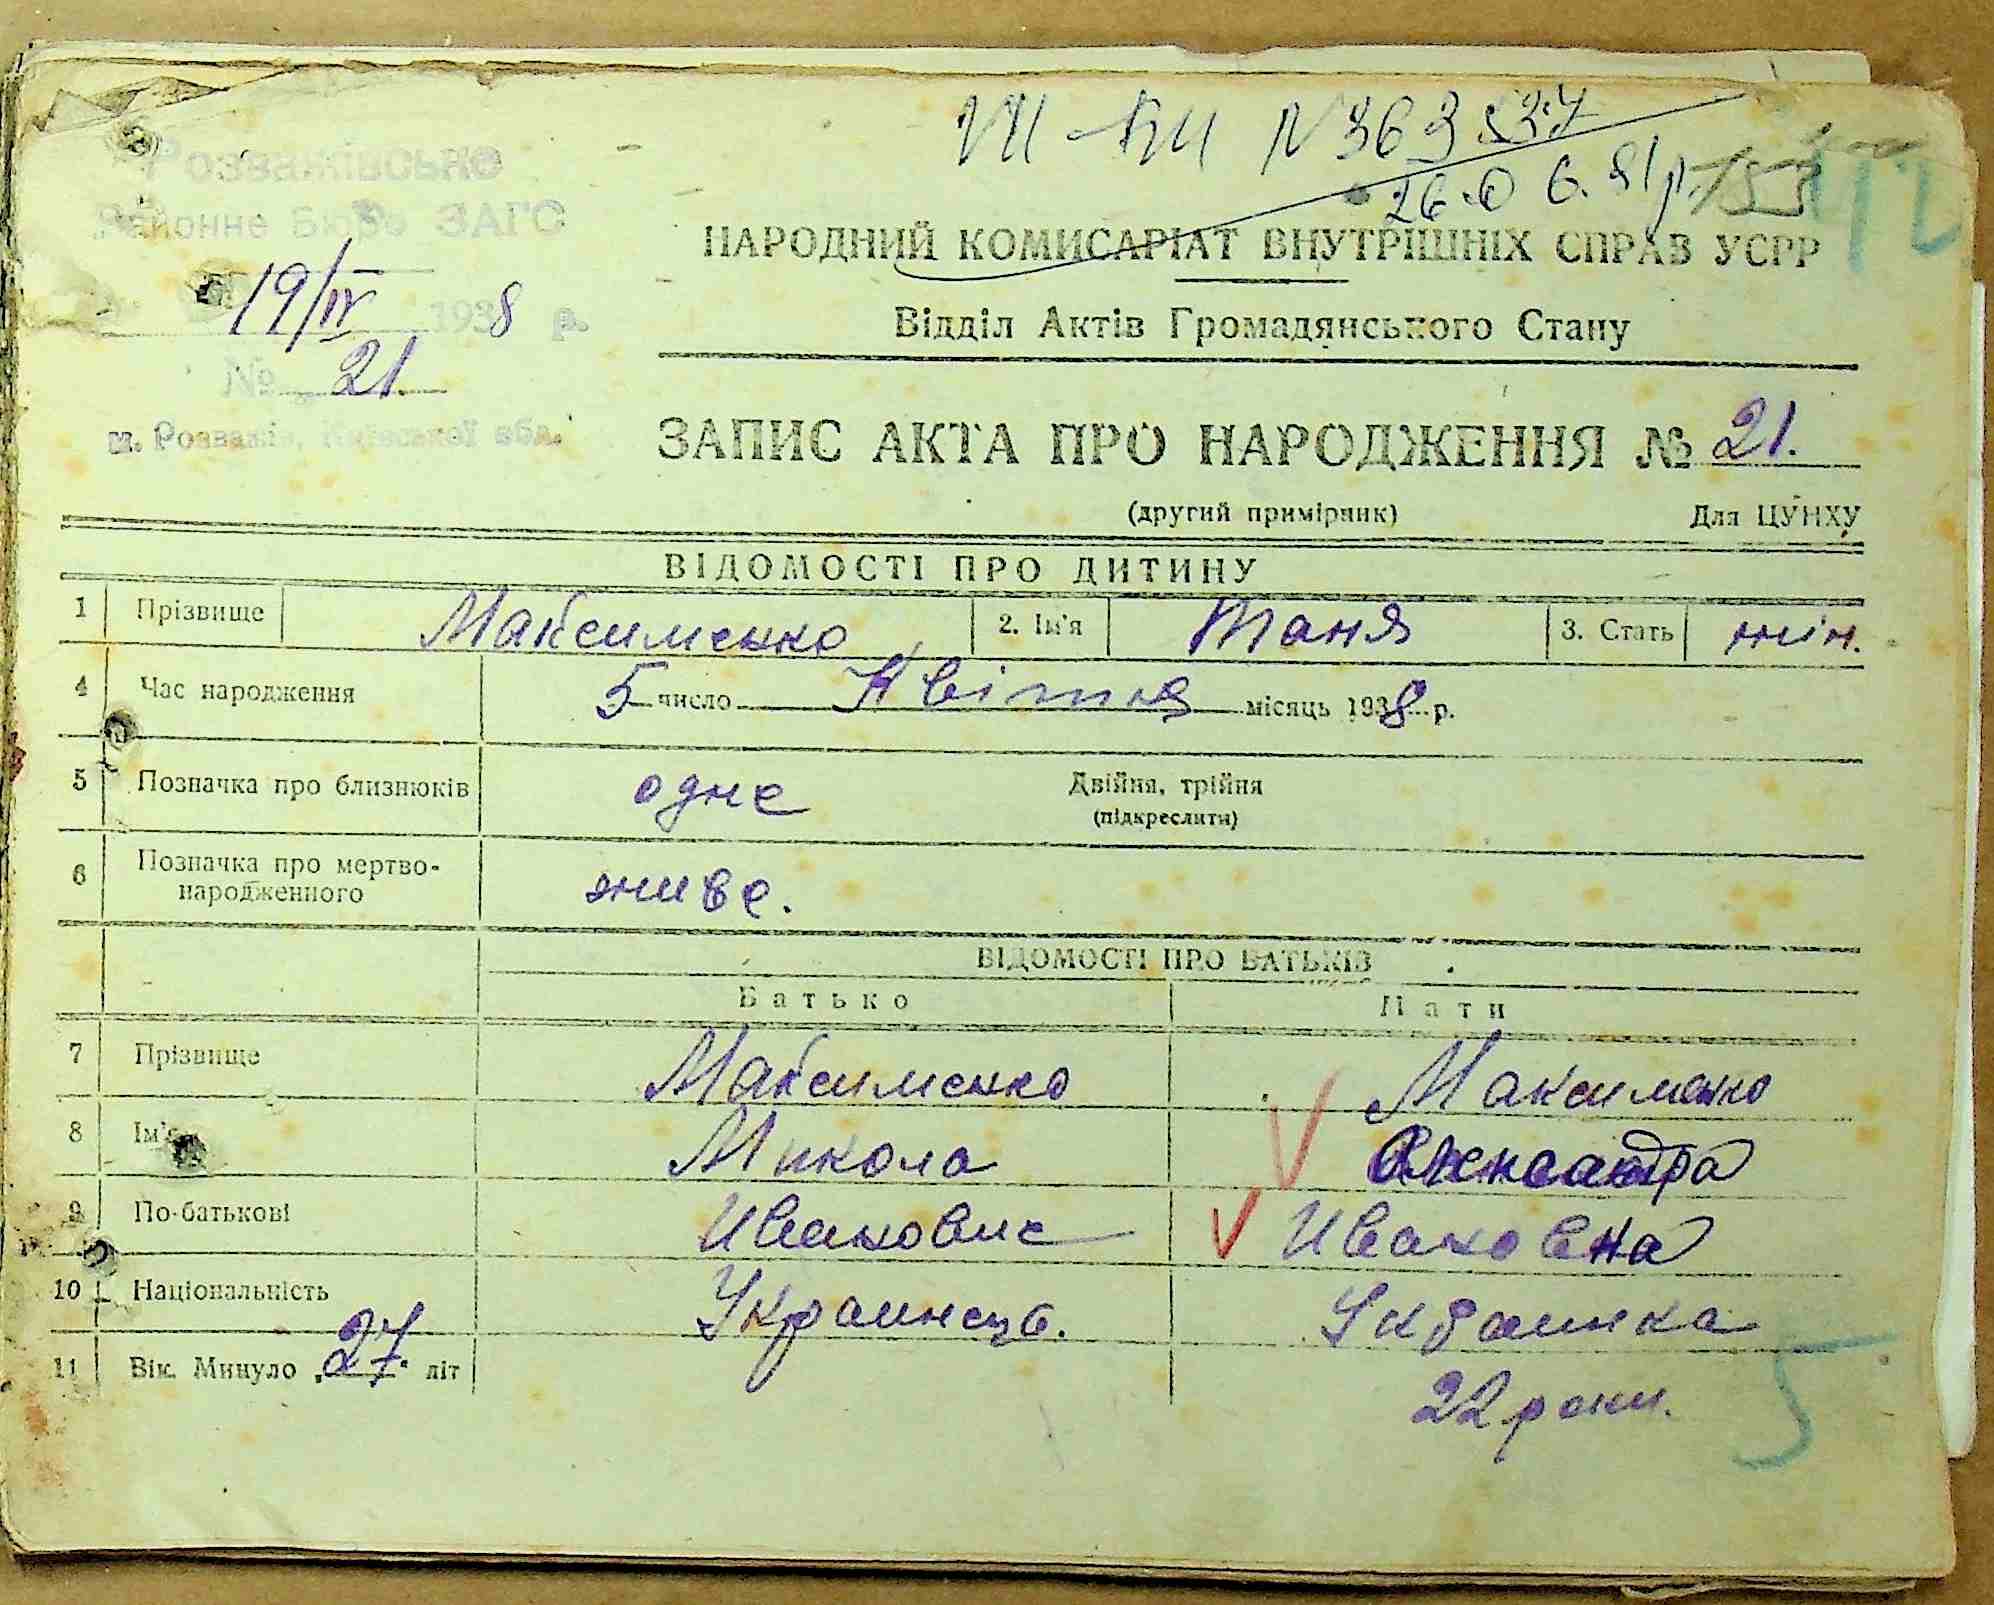 VII-БИ №363537
26.06.81р.
Розважівське
Районне Бюро ЗАГС
19/IV 1938 р.
№ 21.
м. Розважів, Київської обл.
НАРОДНИЙ КОМИСАРІАТ ВНУТРІШНІХ СПРАВ УСРР
Відділ Актів Громадянського Стану
ЗАПИС АКТА ПРО НАРОДЖЕННЯ № 21.
(другий примірник) Для ЦУНХУ
ВІДОМОСТІ ПРО ДИТИНУ
1 Прізвище Максименко 2. Ім'я Таня 3. Стать жін.
4 Час народження 5 число Квітня місяць 1938 р.
5 Позначка про близнюків одне Двійня, трійня
(підкреслити)
6 Позначка про мертво-
народженного живе.
ВІДОМОСТІ ПРО БАТЬКІВ
Батько Мати
7 Прізвище Максименко Максименко
8 Ім'я Микола Олександра
9 По-батькові Иванович Ивановна
10 Національність Украинець. Украинка
11 Вік. Минуло „27" літ 22 роки.
5